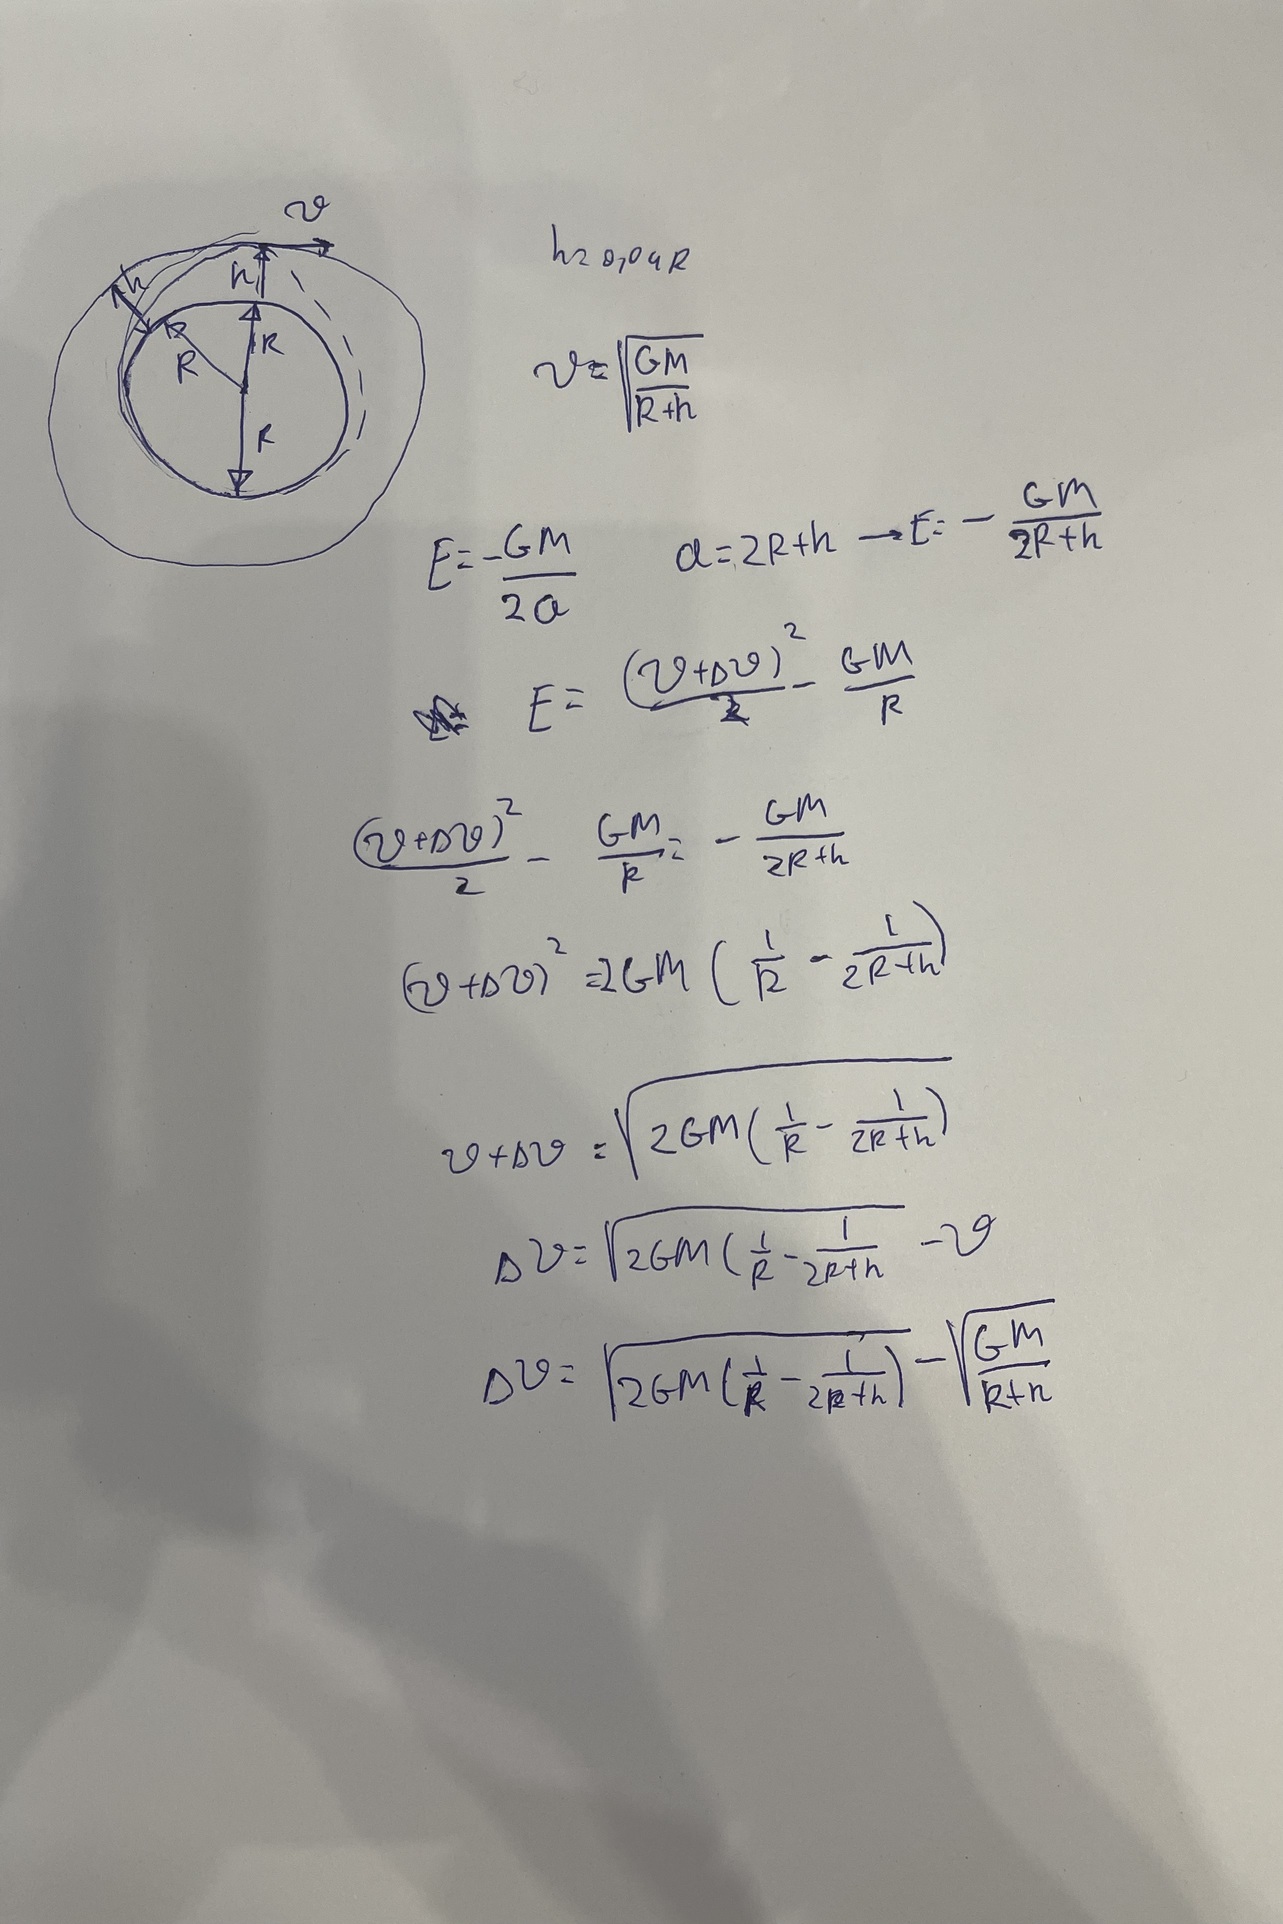 v
h
h
R
R
R
h=0,04R
v=√(GM/(R+h))
E=-GM/2a a=2R+h →E=-GM/(2R+h)
E=(v+Δv)²/2-GM/R
(v+Δv)²/2-GM/R=-GM/(2R+h)
(v+Δv)²=2GM(1/R-1/(2R+h))
v+Δv=√(2GM(1/R-1/(2R+h)))
Δv=√(2GM(1/R-1/(2R+h))-v
Δv=√(2GM(1/R-1/(2R+h)))-√(GM/(R+h))